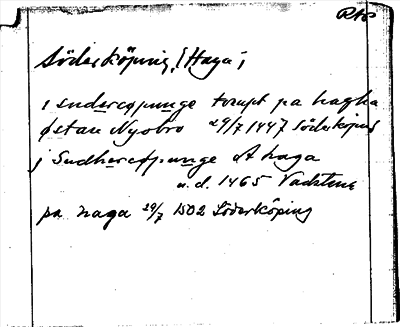 RAp
Söderköping, (Haga),
i sudercøpunge tompt pa hagha
østan Nyobro 29/7 1447 Söderköping
j Sudhercøpunge At haga
u.d. 1465 Vadstena
pa haga 29/7 1502 Söderköping